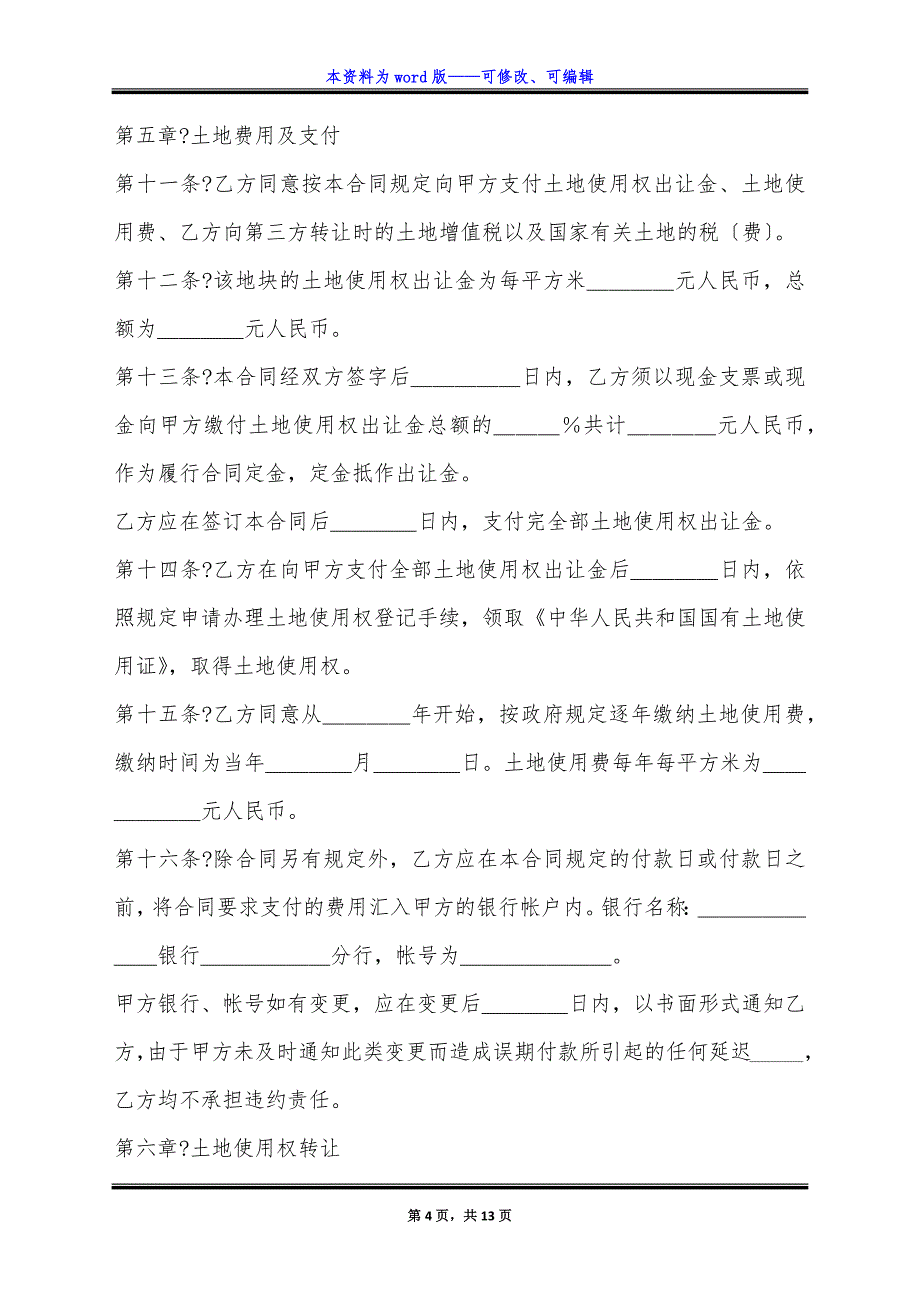 本资料为 word 版——可修改、可编辑
第五章?土地费用及支付
第十一条?乙方同意按本合同规定向甲方支付土地使用权出让金、土地使
用费、乙方向第三方转让时的土地增值税以及国家有关土地的税〔费〕。
第十二条?该地块的土地使用权出让金为每平方米________元人民币，总
额为________元人民币。
第十三条?本合同经双方签字后__________日内，乙方须以现金支票或现
金向甲方缴付土地使用权出让金总额的______％共计________元人民币，
作为履行合同定金，定金抵作出让金。
乙方应在签订本合同后________日内，支付完全部土地使用权出让金。
第十四条?乙方在向甲方支付全部土地使用权出让金后________日内，依
照规定申请办理土地使用权登记手续，领取《中华人民共和国国有土地使
用证》，取得土地使用权。
第十五条?乙方同意从________年开始，按政府规定逐年缴纳土地使用费，
缴纳时间为当年________月________日。土地使用费每年每平方米为____
________元人民币。
第十六条?除合同另有规定外，乙方应在本合同规定的付款日或付款日之
前，将合同要求支付的费用汇入甲方的银行帐户内。银行名称：__________
____银行____________分行，帐号为______________。
甲方银行、帐号如有变更，应在变更后________日内，以书面形式通知乙
方，由于甲方未及时通知此类变更而造成误期付款所引起的任何延迟_____，
乙方均不承担违约责任。
第六章?土地使用权转让
第 4 页，共 13 页